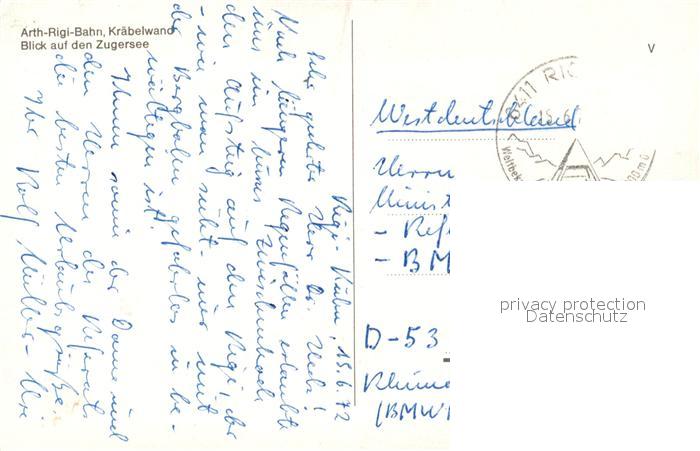 Arth-Rigi-Bahn, Kräbelwand
Blick auf den Zugersee
V
Rigi-Kulm, 15.6.72
Sehr geehrter Herr Dr.
Nach längeren Regenfällen erlaubte
uns ein kurzes Zwischenhoch
den Aufstieg auf den Rigi, der
- wie man sieht - nur mit
der Bergbahn gefahrlos zu be-
wältigen ist!
Ihnen sowie der Dame und
den Herren des Referats
die besten Urlaubsgrüße.
Ihr Rolf Müller-
6411 RIG
Weltbek
00 m ü
Westdeutschland
Herrn
Minist
- Ref
- BM
D-53
(BMWi
privacy protection
Datenschutz